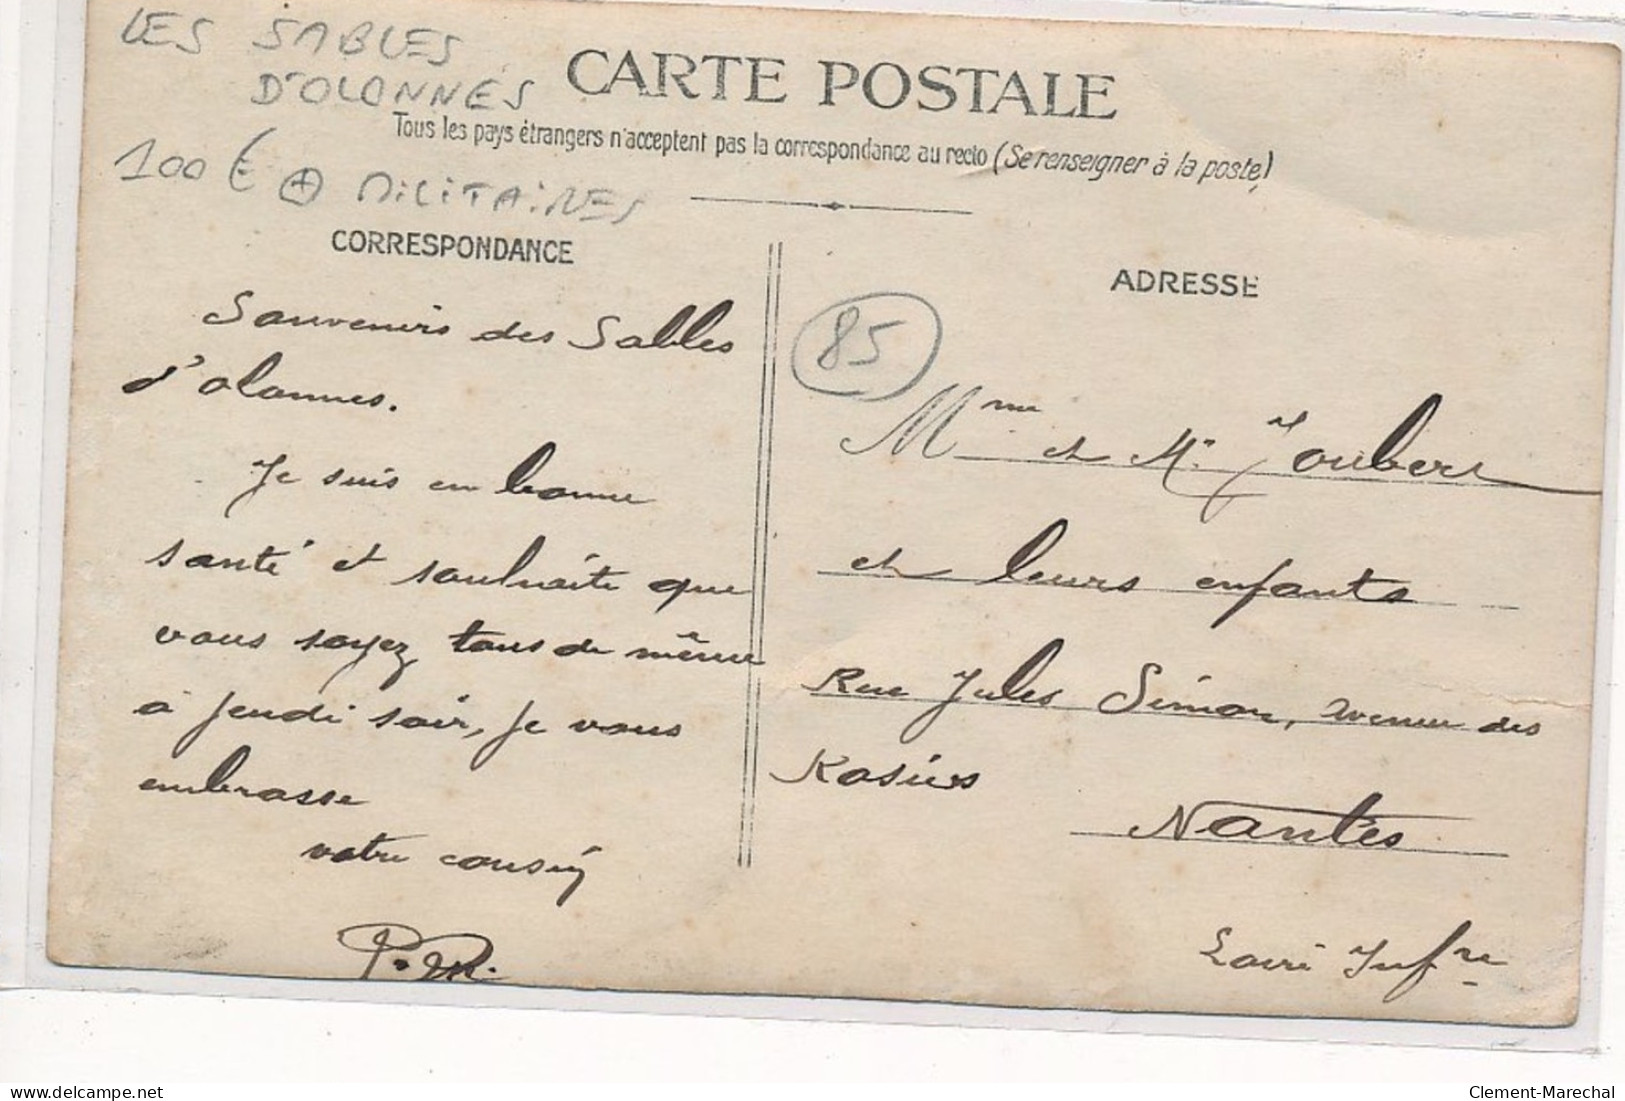 LES SABLES
D'OLONNES
100 € ⊕ MILITAIRES
CARTE POSTALE
Tous les pays étrangers n'acceptent pas la correspondance au recto (Se renseigner à la poste)
CORRESPONDANCE
Souvenirs des Sables
d'olonnes.
Je suis en bonne
santé et souhaite que
vous soyez tous de même
à jeudi soir, je vous
embrasse
votre cousin
ADRESSE
85
Mme et Mr Joubert
et leurs enfants
Rue Jules Simon, avenue des
Rosiers
Nantes
Loire Infre
delcampe.net
Clement-Marechal